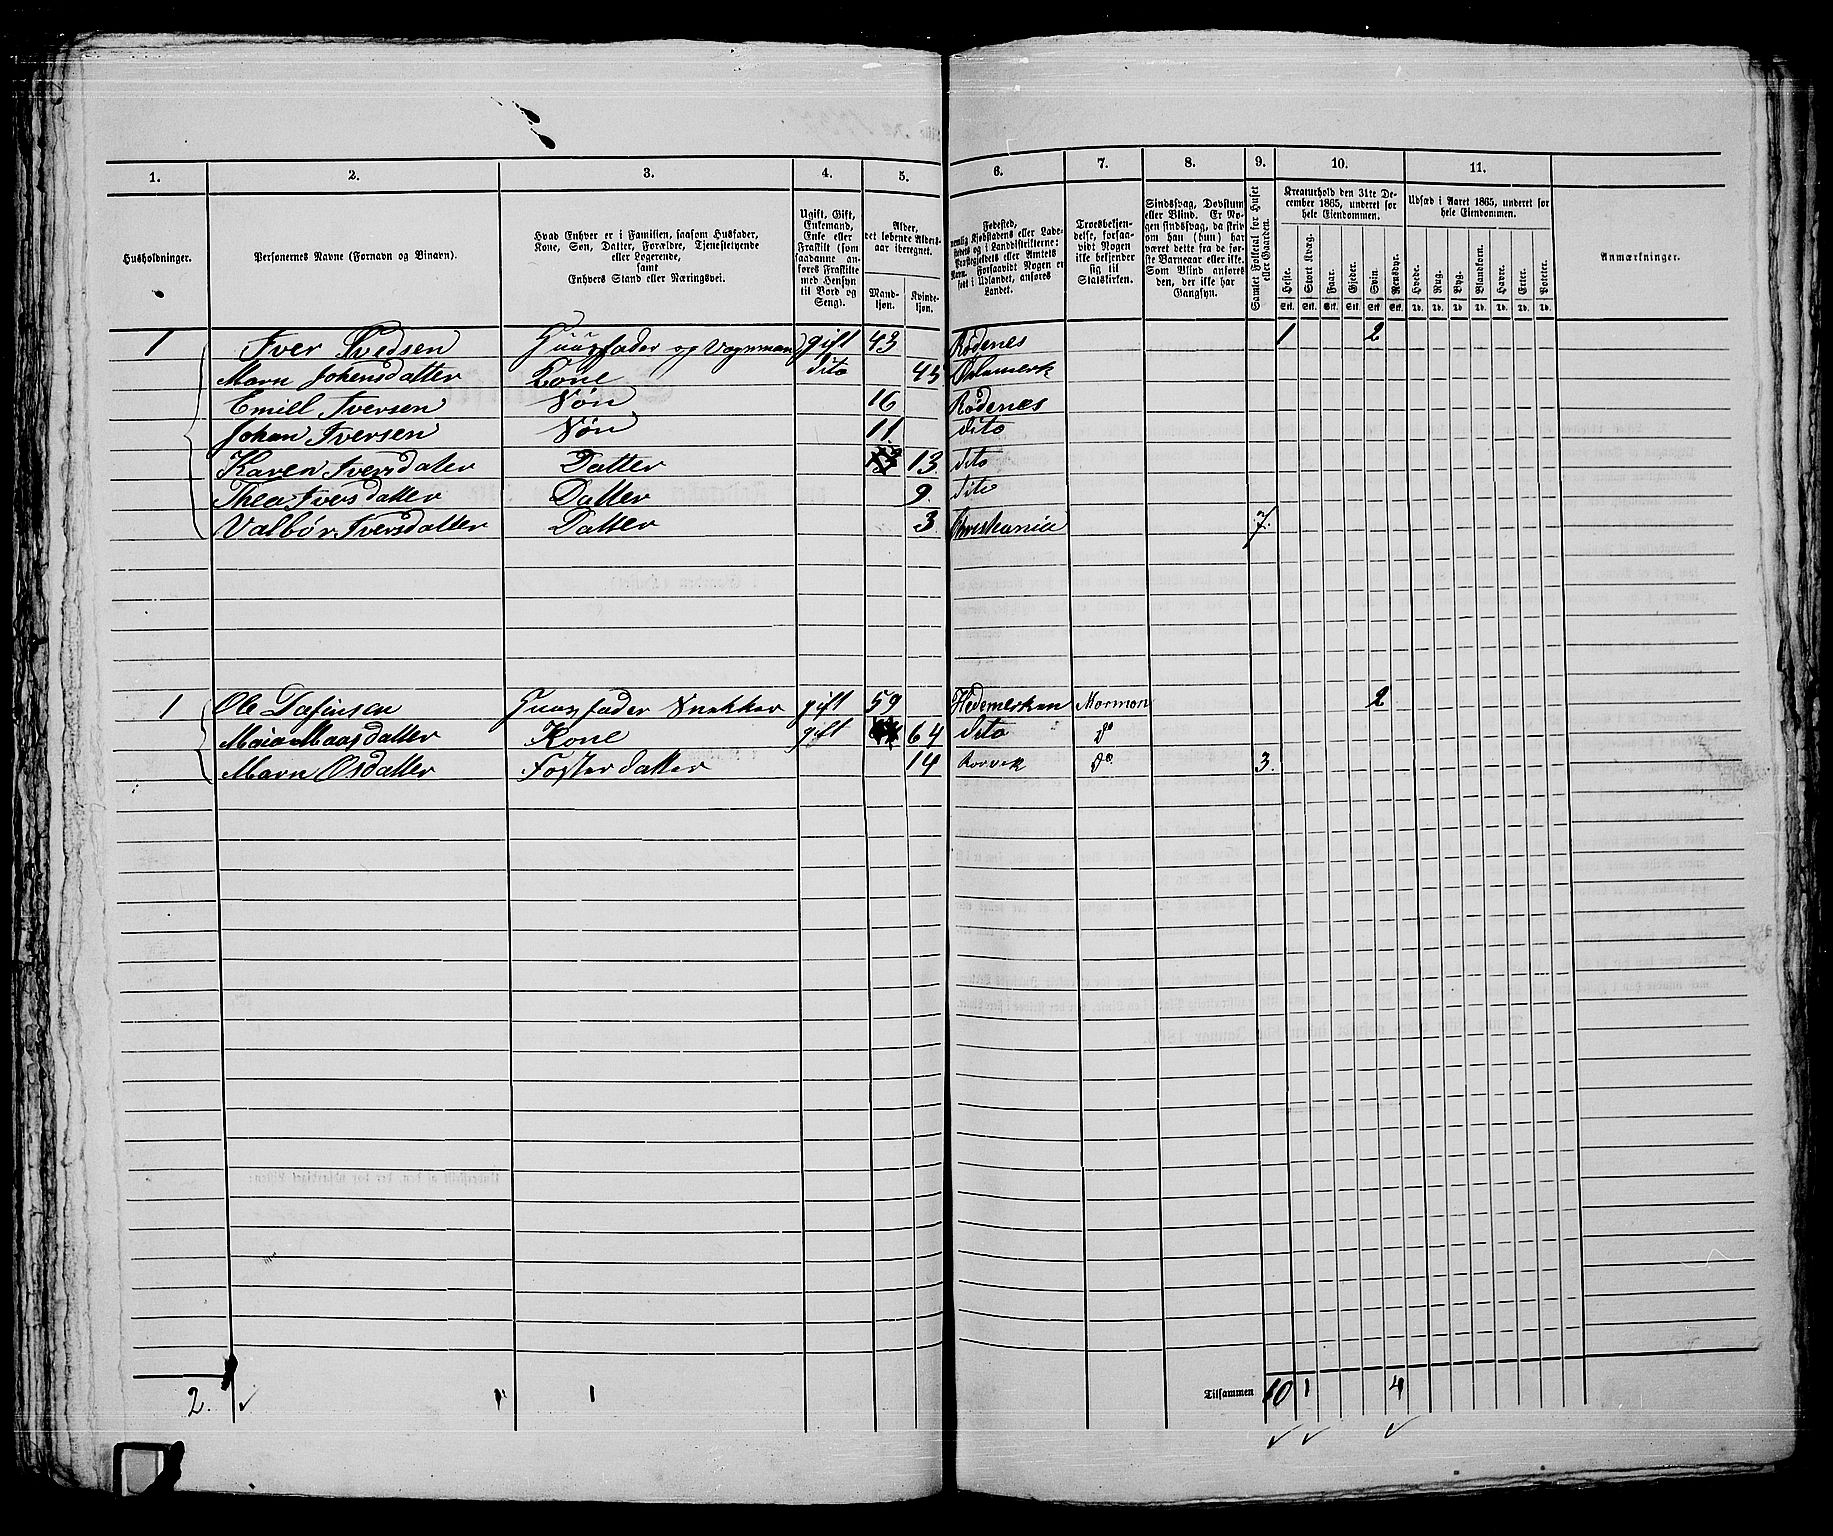 1. 2. 3. 4. 5. 6. 7. 8. 9. 10. 11.
Husholdninger.
Personernes Navne (Fornavn og Binavn).
Hvad Enhver er i Familien, saasom Husfader,
Kone, Søn, Datter, Forældre, Tjenestetyende
eller Logerende,
samt
Enhvers Stand eller Næringsvei.
Ugift, Gift,
Enkemand,
Enke eller
Fraskilt (som
saadanne an-
føres Fraskilte
med Hensyn
til Bord og
Seng).
Alder,
det løbende Alders-
aar iberegnet.
Mand-
kjøn.
Kvinde-
kjøn.
Fødested,
Troesbekjen-
delse, forsaa-
vidt Nogen
ikke bekjender
sig til
Statskirken.
Sindssvag, Døvstum
eller Blind. Er No-
gen sindssvag, da skriv
om han (hun) har
været dette fra de før-
ste Barneaar eller ikke.
Som Blind anføres
den, der ikke har
Gangsyn.
Samlet Folketal for Huset
eller Gaarden.
Kreaturhold den 31te De-
cember 1865, underet for
hele Eiendommen.
Heste. Stort Kvæg. Faar. Gjeder. Svin. Rensdyr.
Stk. Stk. Stk. Stk. Stk. Stk.
Udsæd i Aaret 1865, underet for
hele Eiendommen.
Hvede. Rug. Byg. Blandkorn. Havre. Erter. Poteter.
Td. Td. Td. Td. Td. Td. Td.
Anmærkninger.
1 Iver Huusfader og Vognman gift 43 Rødenes 1 2
Marn Johensdatter Kone dito 45
Emill Iversen Søn 16 Rødenes
Johan Iversen Søn 11. dito
Karen Iversdater Datter 13 dito
Thea Iversdatter Datter 9. dito
Valbør Iversdatter Datter 3. Christiania 7.
1 Ole Huusfader Snekker gift 59 Hedemerken Mormon 2
Kone gift 64 dito do
Marn Osdatter Foster datter 14 do 3.
2. 1 Tilsammen 10 1 4